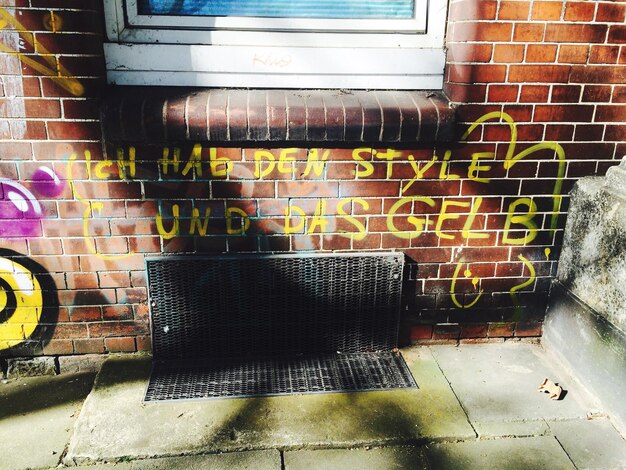 ICH HAB DEN STYLE
UND DAS GELB